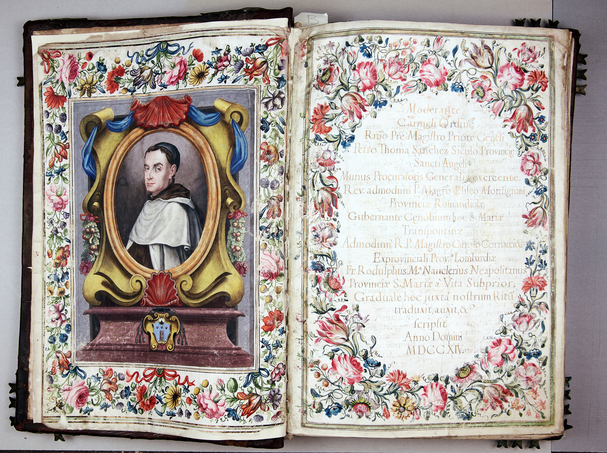 Moderante
Carmeli Ordinē
Rmo Pre Magistro Priore Gnāli
Petro Thoma Sanchez Siculo Provinciæ
Sancti Angeli
Munus Procurijque Generalis exercente
Rev. admodum P. Magro
Provinciæ Romandiolæ
Gubernante Cenobium hoc S. Mariæ
Transpontinæ
Admodum R. P. Magistro Cornaccia
Exprovinciali Provæ Lombardiæ
Fr. Rodulphus Mª Nauclerus Neapolitanus
Provinciæ S. Mariæ a Vita Subprior,
Graduale hoc juxta nostrum Ritū
traduxit, auxit, &
scripsit
Anno Domini
MDCCXIV.